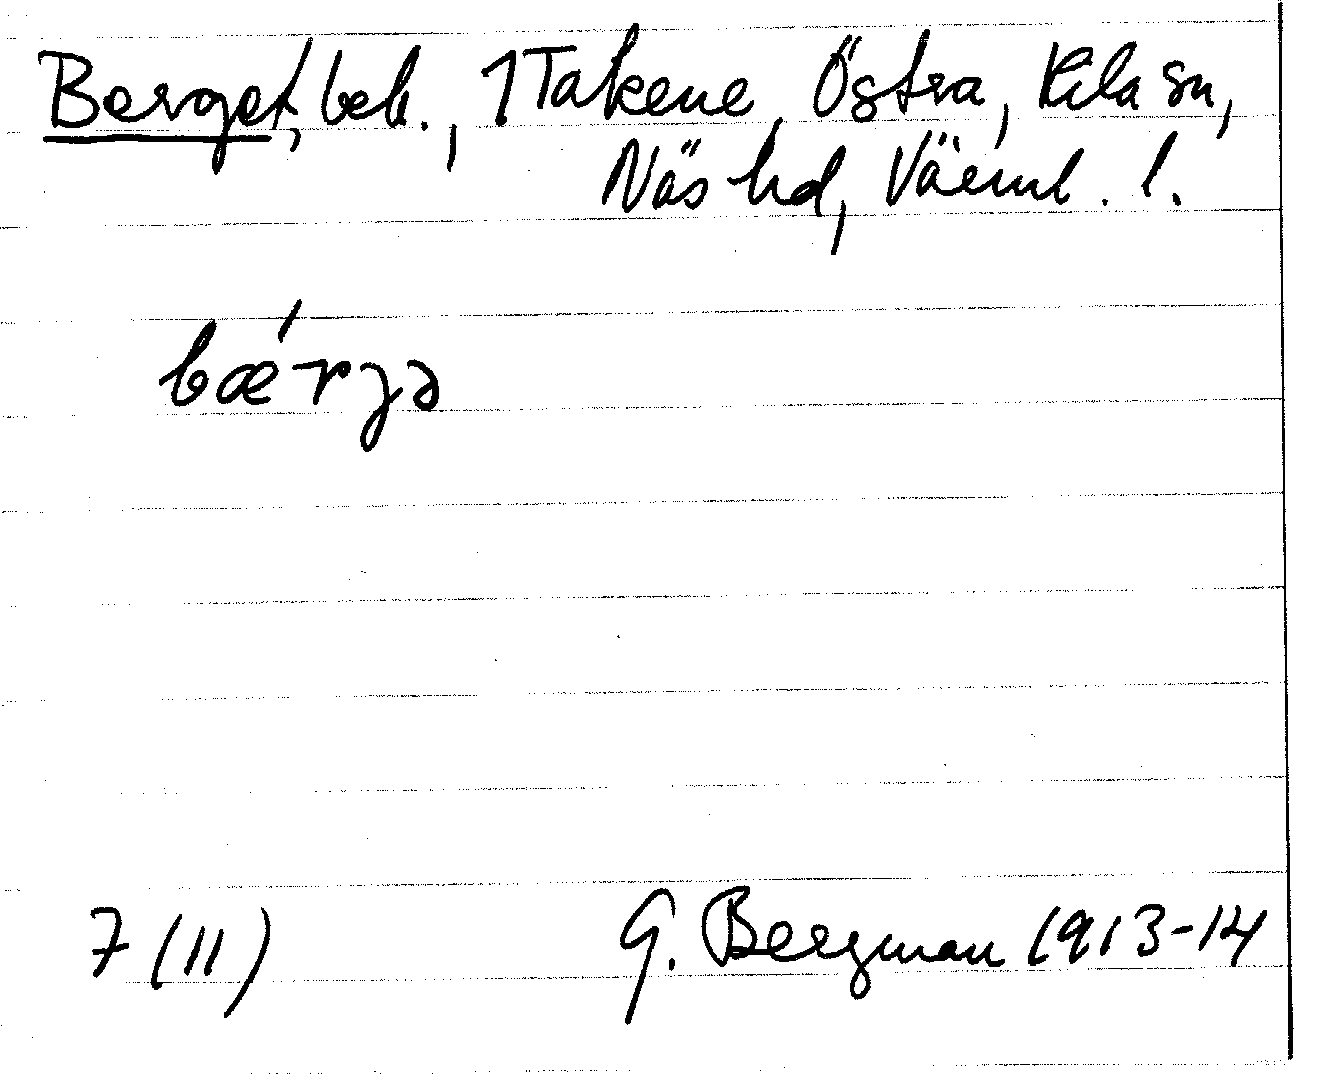 Berget, beb., 1 Takene, Östra, Kila sn,
Näs hd, Värml. l.
bǽrjə
7 (11) G. Bergman 1913-14